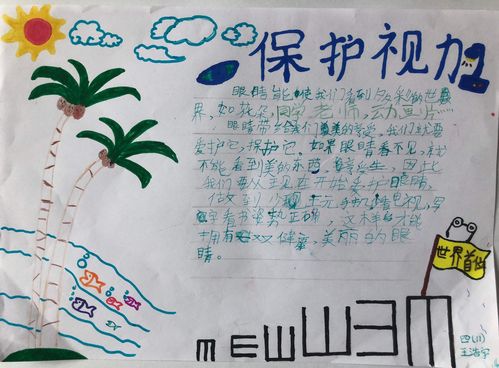 保护视力
眼睛能使我们看到多彩的世
界,如花朵,同学,老师,动画片……
眼睛带给我们最美的享受,我们就要
爱护它,保护它,如果眼睛看不见,就
不能看到美的东西,因此
我们要从现在开始爱护眼睛,
做到少玩手机,电视,写
字看书姿势正确,这样才能
拥有健康,美丽的眼
睛。
世界首位
m E W Ш Ǝ m
四(1)
王浩宇